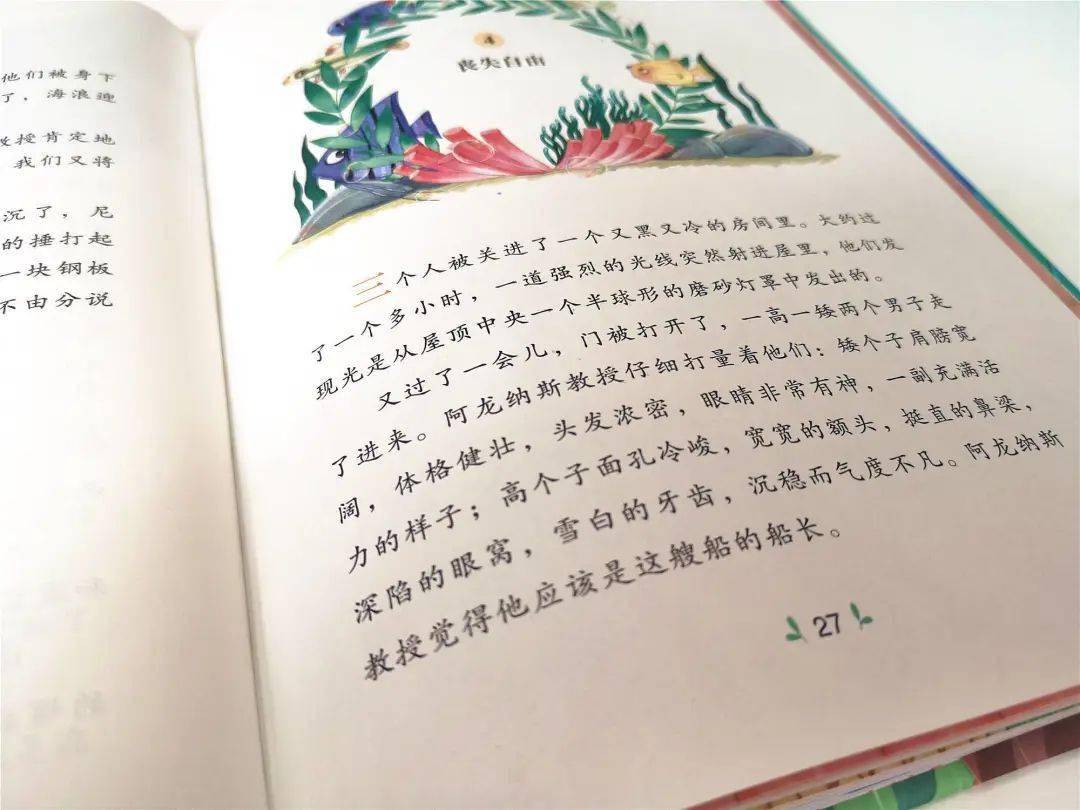 他们被身下
了，海浪迎
教授肯定地
我们又将
沉了，尼
的捶打起
一块钢板
不由分说
4
丧失自由
三个人被关进了一个又黑又冷的房间里。大约过
了一个多小时，一道强烈的光线突然射进屋里，他们发
现光是从屋顶中央一个半球形的磨砂灯罩中发出的。
又过了一会儿，门被打开了，一高一矮两个男子走
了进来。阿龙纳斯教授仔细打量着他们：矮个子肩膀宽
阔，体格健壮，头发浓密，眼睛非常有神，一副充满活
力的样子；高个子面孔冷峻，宽宽的额头，挺直的鼻梁，
深陷的眼窝，雪白的牙齿，沉稳而气度不凡。阿龙纳斯
教授觉得他应该是这艘船的船长。
27